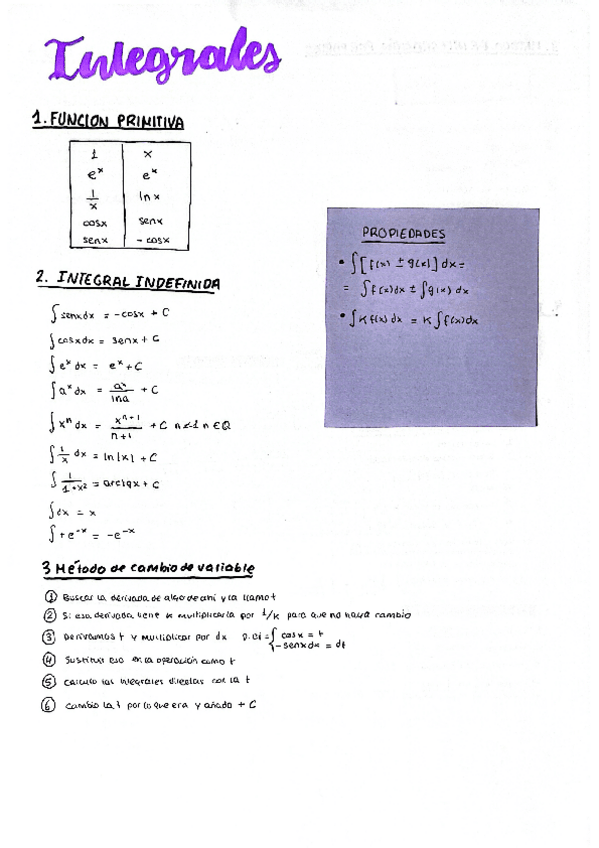 Integrales
1. FUNCION PRIMITIVA
1 x
e^x e^x
1/x ln x
cosx senx
senx - cosx
PROPIEDADES
• ∫[f(x) ± g(x)] dx =
= ∫f(x)dx ± ∫g(x) dx
• ∫K f(x) dx = K ∫f(x)dx
2. INTEGRAL INDEFINIDA
∫senxdx = -cosx + C
∫cosxdx = senx + C
∫e^x dx = e^x + C
∫a^x dx = a^x/lna + C
∫x^n dx = x^(n+1)/(n+1) + C n≠-1 n ∈ Q
∫1/x dx = ln|x| + C
∫1/(1+x²) = arctgx + C
∫dx = x
∫+e^-x = -e^-x
3 Método de cambio de variable
① Buscar la derivada de algo de ahí y la llamo t
② Si esa derivada tiene k multiplicarla por 1/k para que no haya cambio
③ Derivamos t y multiplicar por dx p.ej = { cosx = t
-senxdx = dt
④ Sustituir eso en la operación como t
⑤ Calculo las integrales directas con la t
⑥ Cambio la t por lo que era y añado + C